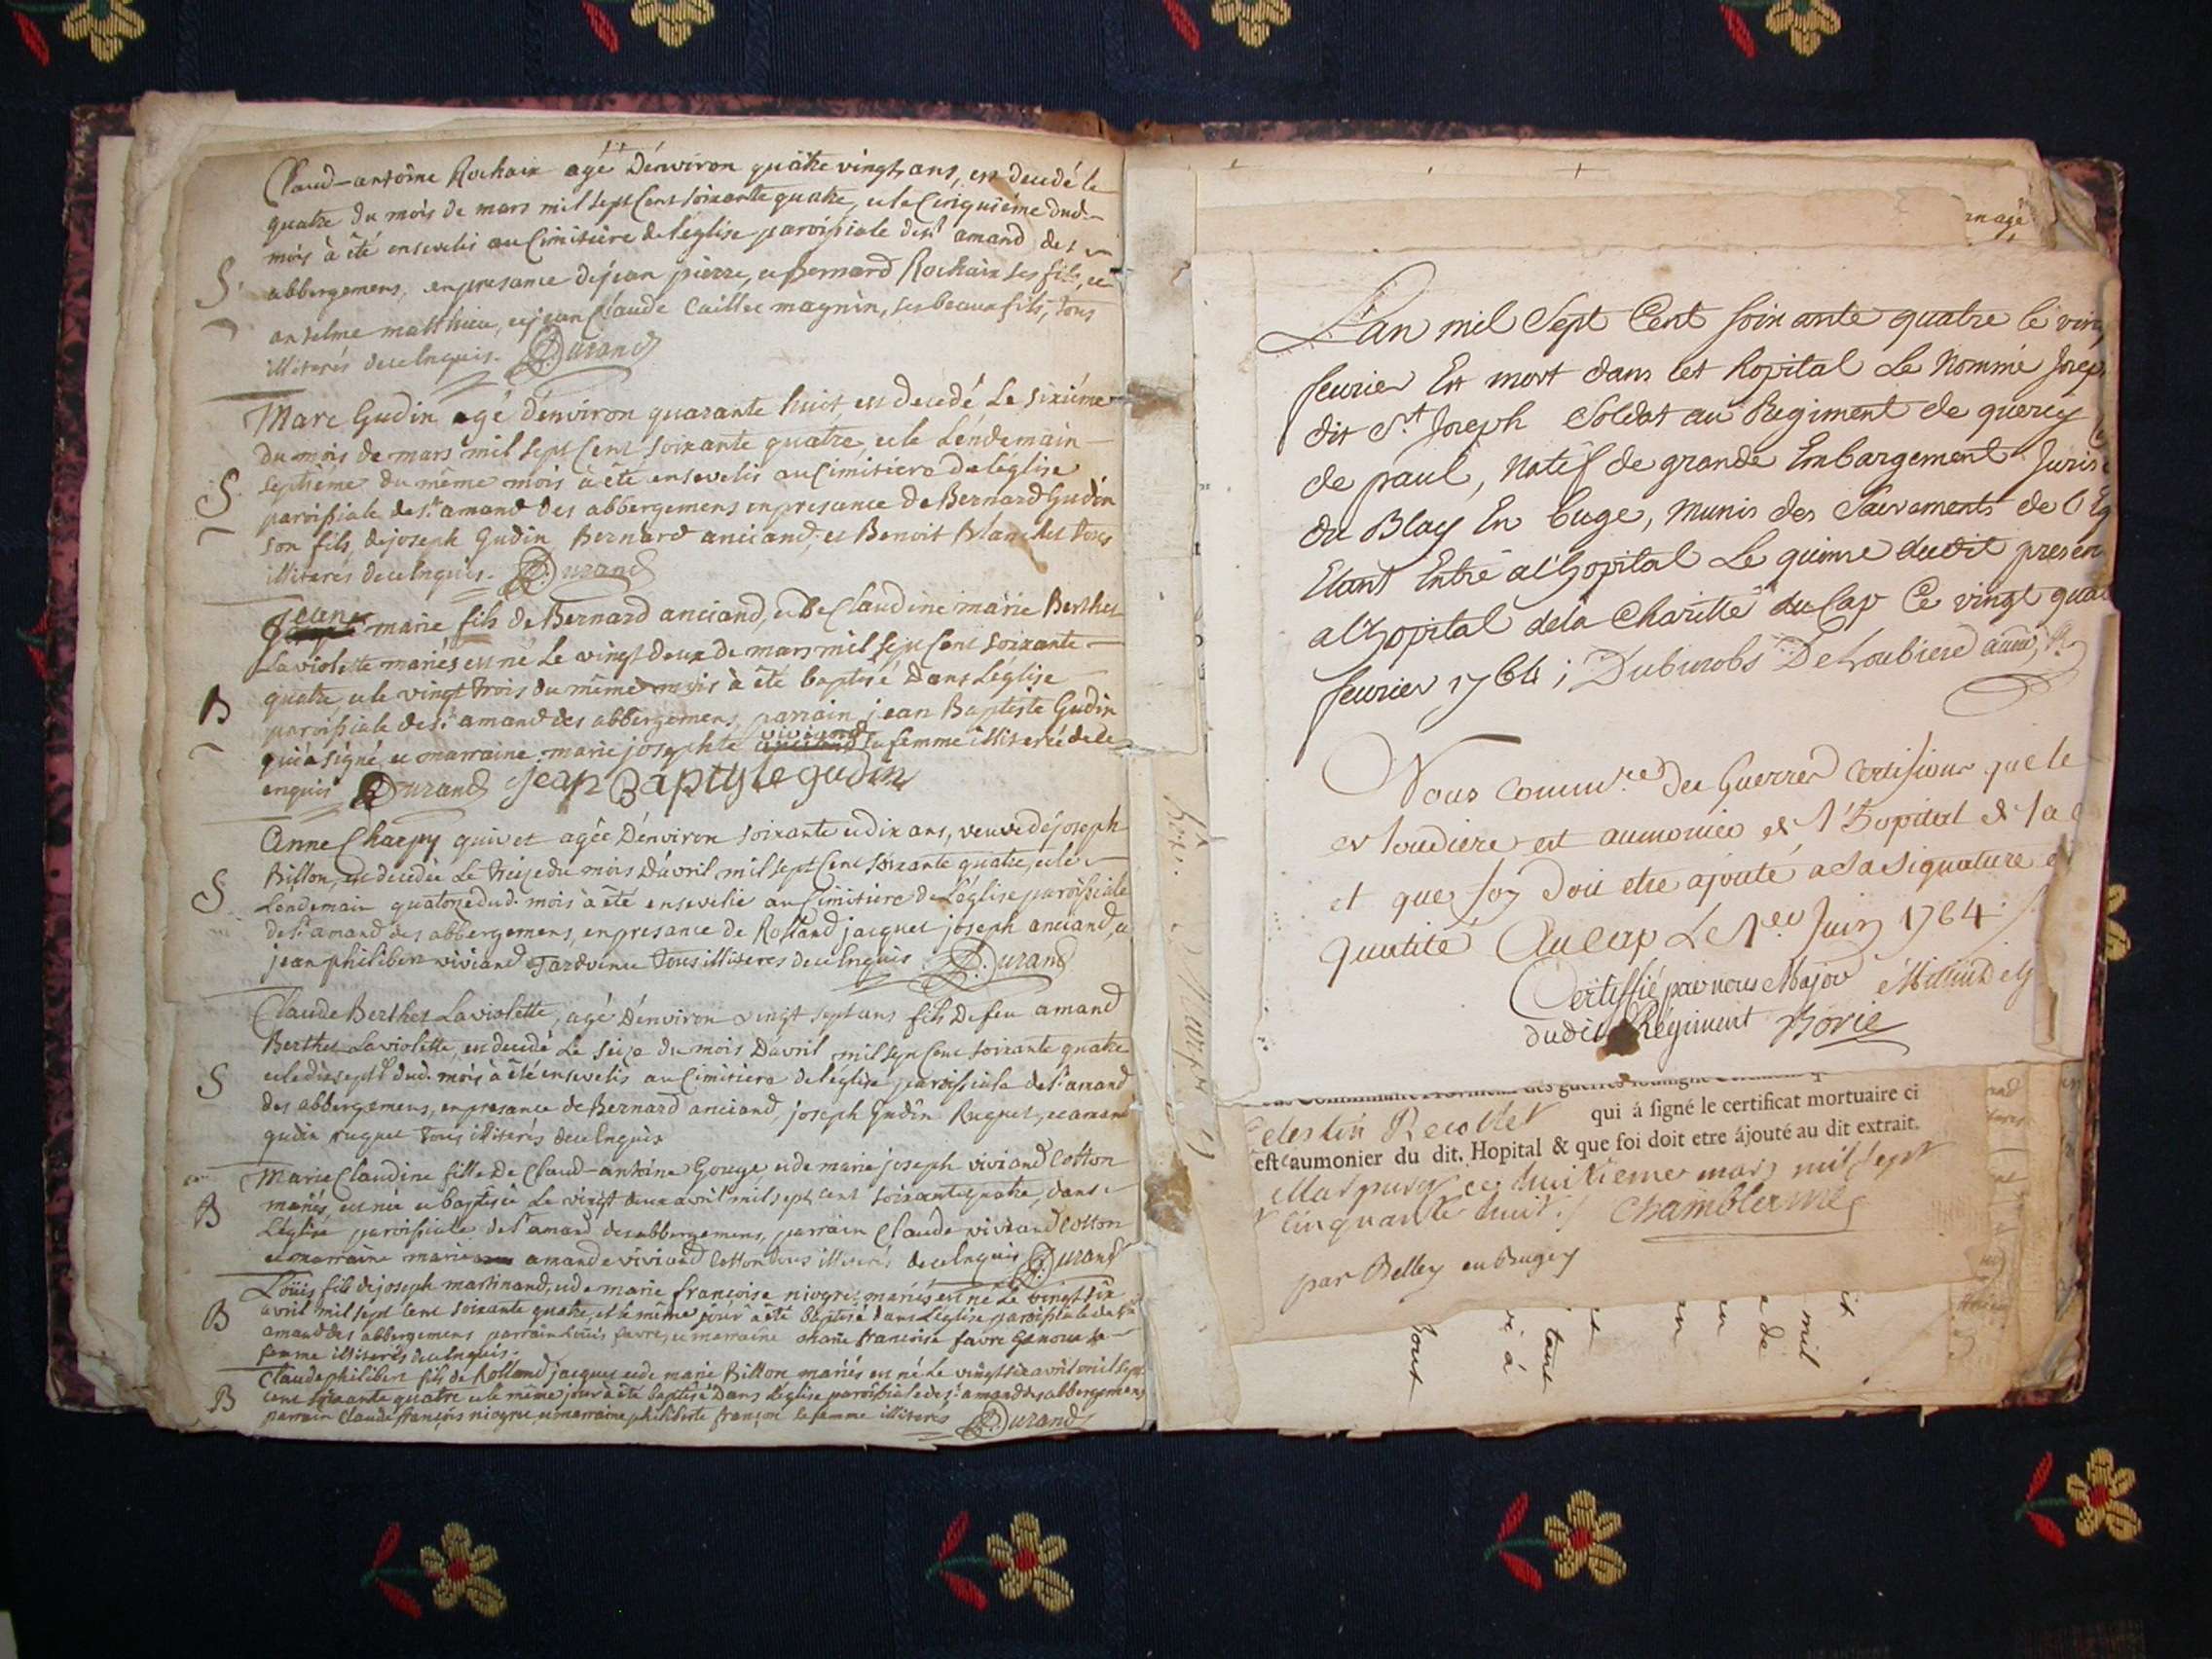 Claud-antoine Rochaix agé D'environ quatre vingt ans, est decedé le
quatre du mois de mars mil sept cent soixante quatre, et le Cinquième dud.
mois à été enseveli au Cimitiere de l'église paroissiale de st amand des
abbergemens, en presance de jean pierre, et Bernard Rochaix ses fils, et
S.
anselme matthieu, et jean Claude Caillet magnin, ses beaux fils, tous
illiterés de ce Enquis. Durand
Marc Gudin agé d'environ quarante huit, est decedé Le sixiéme
du mois de mars mil sept Cent soixante quatre, et le Lendemain
septième du même mois à été enseveli au Cimitiere de l'église
S.
paroissiale de st amand des abbergemens en presance de Bernard Gudin
son fils, de joseph Gudin Bernard anciand, et Benoit Blanchet tous
illiterés de ce Enquis. Durand
Jean marie fils de Bernard anciand, et De Claudine marie Berthet
Laviolette mariés est né Le vingt deux de mars mil sept Cent soixante
quatre, et le vingt trois du même mois à été baptisé Dans L'église
B
paroissiale de st amand des abbergemens, parrain jean Baptiste Gudin
qui à signé, et marraine marie josephte viviand sa femme illiterée de ce
enquis Durand jean Baptyste gudin
Anne Charpy quivet agée D'environ soixante et dix ans, veuve de joseph
Billon, est decedée Le treize du mois D'avril mil sept Cent soixante quatre, et le
S
Lendemain quatorze dud. mois à été ensevelie au Cimitiere de L'église paroissiale
de st amand des abbergemens, en presance de Rolland jacquet joseph anciand, et
jean philibert viviand Tardvenu tous illiteres de ce Enquis Durand
Claude Berthet Laviolette, agé D'environ vingt sept ans fils De feu amand
Berthet Laviolette, est decedé Le seize du mois D'avril mil sept Cent soixante quatre
S
et le dix sept dud. mois à été enseveli au Cimitiere de l'église paroissiale de st amand
des abbergemens, en presance de Bernard anciand, joseph Gudin Ruguet, et amand
gudin ruguet tous illiterés de ce Enquis
Marie Claudine fille De Claud-antoine Gouge et de marie joseph viviand Cotton
B
mariés, est née et baptisée Le vingt deux avril mil sept cent soixante quatre, dans
L'église paroissialle de st amand des abbergemens, parrain Claude viviand Cotton
et marraine marie amande viviand Cotton tous illiterés de ce Enquis Durand
Loüis fils de joseph martinand, et de marie françoise niogret mariés est né Le vingt six
B
avril mil sept cent soixante quatre, et le même jour à été baptisé dans L'église paroissiale de st
amand des abbergemens parrain Loüis favre, et marraine françoise favre sa
femme illiterés de ce Enquis.
Claude philibert fils de Rolland jacquet et de marie Billon mariés est né Le vingt six avril mil sept
B
cent soixante quatre et le même jour à été baptisé Dans L'église paroissiale de st amand des abbergemens
parrain Claude françois niogret et marraine philiberte françon sa femme illiteres Durand
L'an mil Sept Cent soixante quatre le vin
fevrier Est mort dans cet hopital Le Nommé Josep
dit St Joseph Soldat au Regiment de quercy
de paul, Natif de grande Embargement Juris
du Blay En buge, Munis des Sacrements de l'Eg
Etant Entré al'hopital Le quinse dudit presen
al'hopital dela Charitté du Cap Ce vingt quat
fevrier 1764; De Loubiere aum.
Nous Comm.re des Guerres certifions que le
Loudiere est aumonier de l'hopital de la
et que foy doit etre ajouté a sa signature
Qualité Au Cap Le 1er Juin 1764
Certiffié par nous Major
dudit Regiment Borie
qui á signé le certificat mortuaire ci
Celestin Recollet
est aumonier du dit. Hopital & que foi doit etre ájouté au dit extrait.
Marpurg ce huitieme mars mil sept
cinquante huit. Chamblerme
par Belley en Bugey